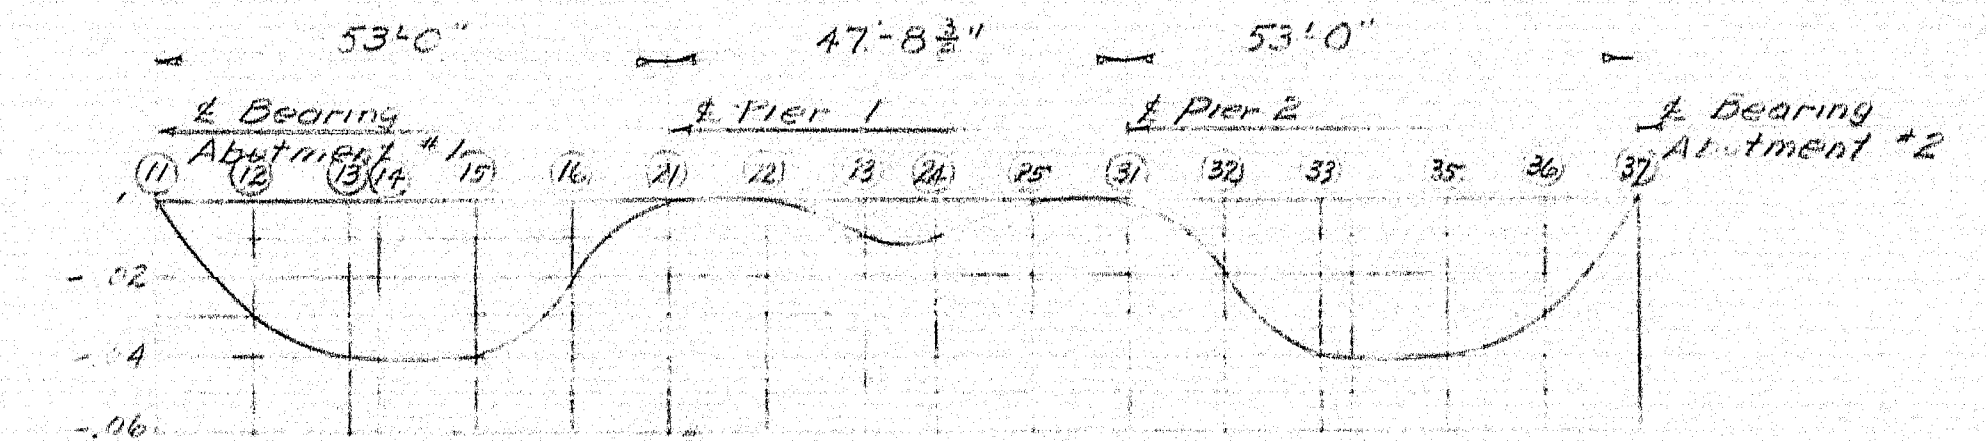 53'-0" 47'-8 3/8" 53'-0"
℄ Bearing ℄ Pier 1 ℄ Pier 2 ℄ Bearing
Abutment #1 Abutment #2
11 12 13 14 15 16 21 22 23 24 25 31 32 33 35 36 37
-.02
-.04
-.06